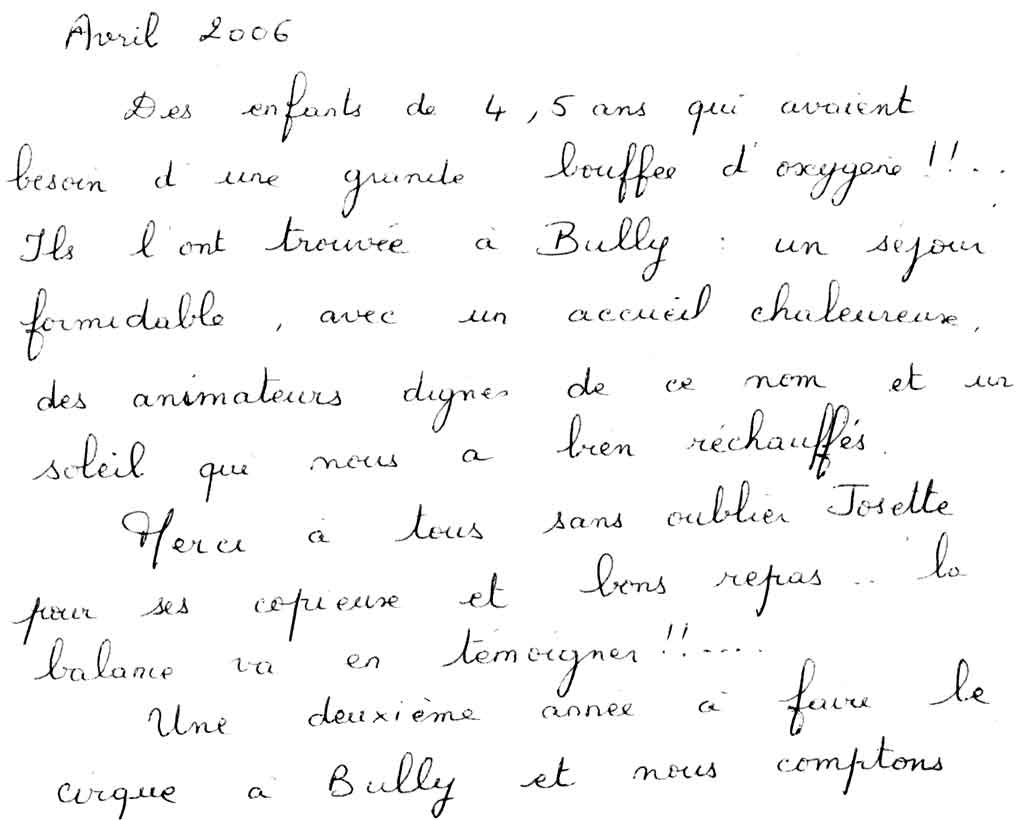 Avril 2006
Des enfants de 4, 5 ans qui avaient
besoin d'une grande bouffée d'oxygène !!..
Ils l'ont trouvée à Bully : un séjour
formidable, avec un accueil chaleureux,
des animateurs dignes de ce nom et un
soleil qui nous a bien réchauffés.
Merci à tous sans oublier Josette
pour ses copieux et bons repas .. la
balance va en témoigner !!.....
Une deuxième année à faire le
cirque à Bully et nous comptons